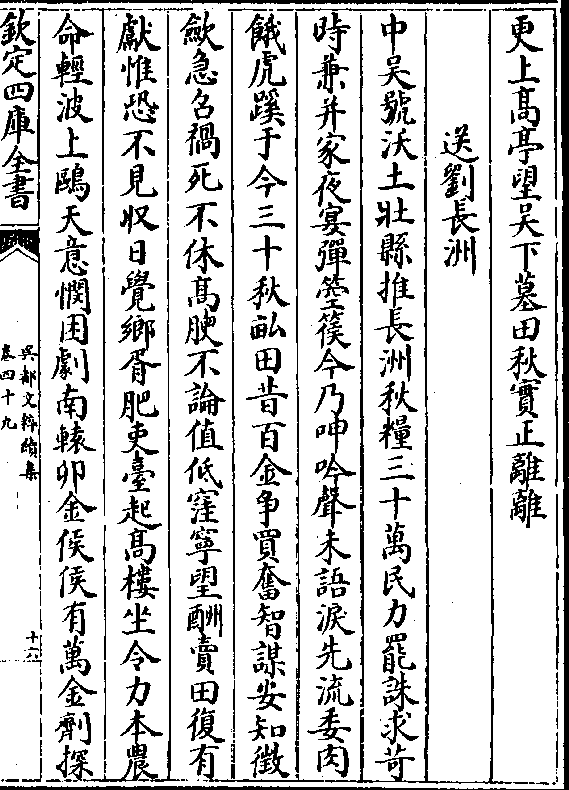 更上髙亭望吴下墓田秋實正離離
送劉長洲
中吴號沃土壯縣推長洲秋糧三十萬民力罷誅求苛
時兼并家夜宴彈箜篌今乃呻吟聲未語淚先流委肉
餓虎蹊于今三十秋畝田昔百金争買奮智謀安知徴
歛急名禍死不休髙腴不論值低窪寧望酬賣田復有
獻惟恐不見収日覺鄉胥肥吏臺起髙樓坐令力本農
命輕波上鷗天意憫困劇南轅卯金侯侯有萬金劑探
欽定四庫全書
吴都文粹續集
卷四十九
十六